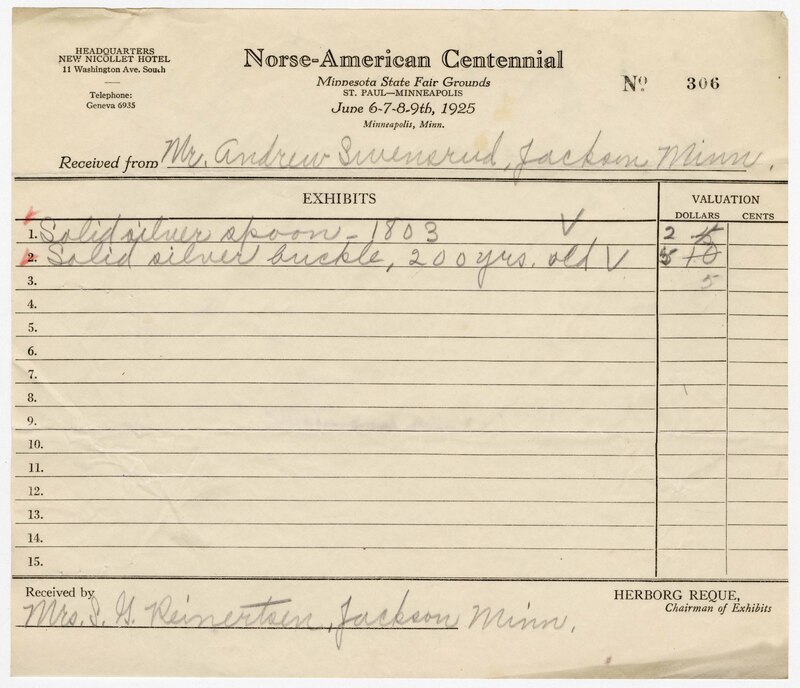 HEADQUARTERS
NEW NICOLLET HOTEL
11 Washington Ave. South
Telephone:
Geneva 6935
Norse-American Centennial
Minnesota State Fair Grounds
ST. PAUL—MINNEAPOLIS
June 6-7-8-9th, 1925
Minneapolis, Minn.
No. 306
Received from Mr. Andrew Swensrud, Jackson Minn.
EXHIBITS VALUATION
DOLLARS CENTS
1. Solid silver spoon - 1803 2
2. Solid silver buckle, 200 yrs. old 5 10
3. 5
4.
5.
6.
7.
8.
9.
10.
11.
12.
13.
14.
15.
Received by
Mrs. S. G. Reinertsen, Jackson Minn.
HERBORG REQUE,
Chairman of Exhibits